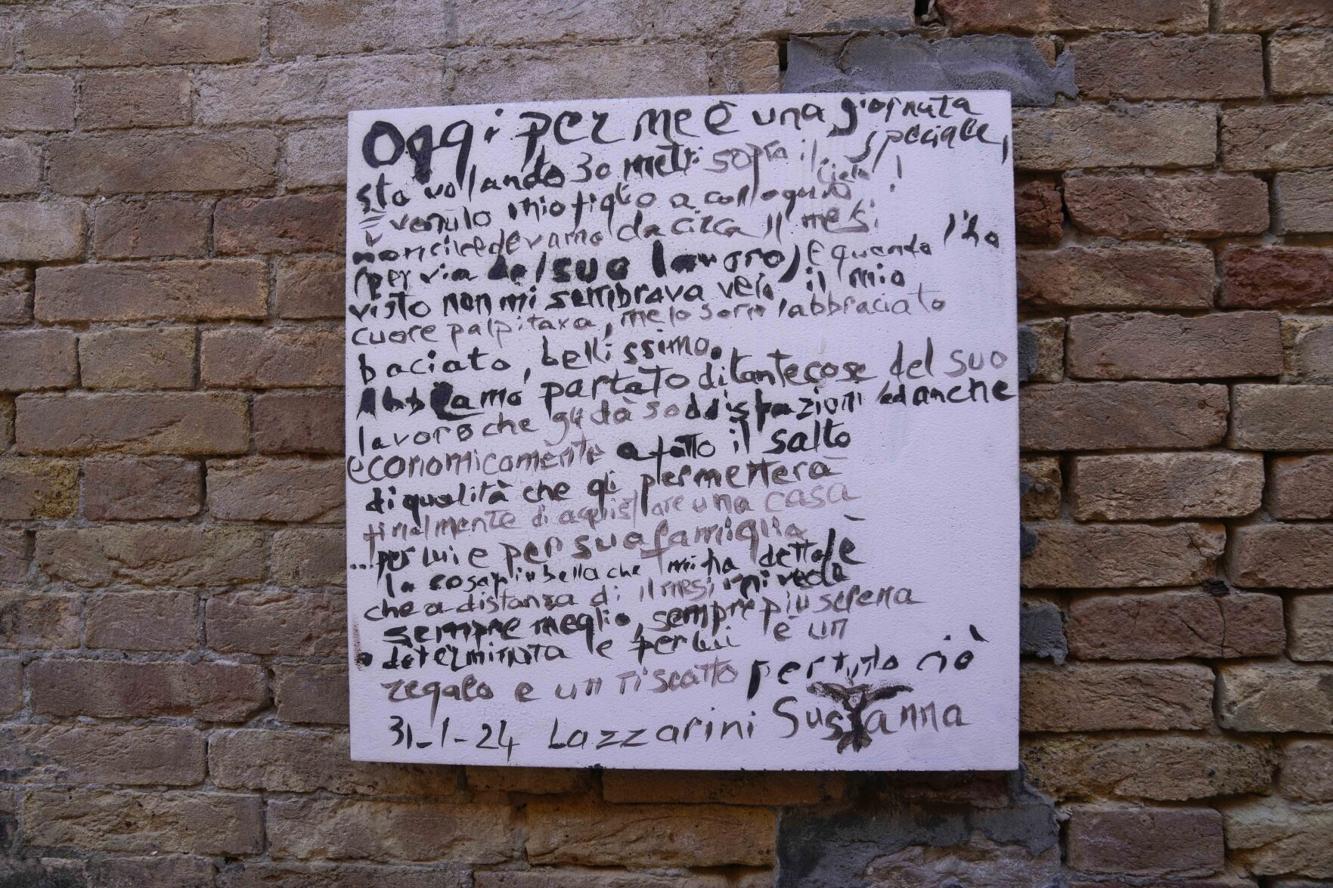 Oggi per me è una giornata
speciale,
sto volando 30 metri sopra il cielo!
È venuto mio figlio a colloquio
non ci vedevamo da circa 11 mesi
(per via del suo lavoro) E quando l'ho
visto non mi sembrava vero, il mio
cuore palpitava, me lo sono abbracciato
baciato, bellissimo.
Abbiamo parlato di tante cose del suo
lavoro che gli dà soddisfazioni ed anche
economicamente a fatto il salto
di qualità che gli permetterà
finalmente di acquistare una casa
...per lui e per sua famiglia
la cosa più bella che mi ha detto è
che a distanza di 11 mesi mi vede
sempre meglio, sempre più serena
e determinata e per lui è un
regalo e un riscatto per tutto ciò
31-1-24 Lazzarini Susanna